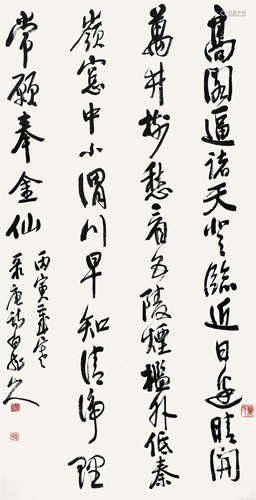 高閣逼諸天登臨近日邊晴開
萬井樹愁看五陵煙檻外低秦
嶺窓中小渭川早知清淨理
常願奉金仙
丙寅
录唐詩